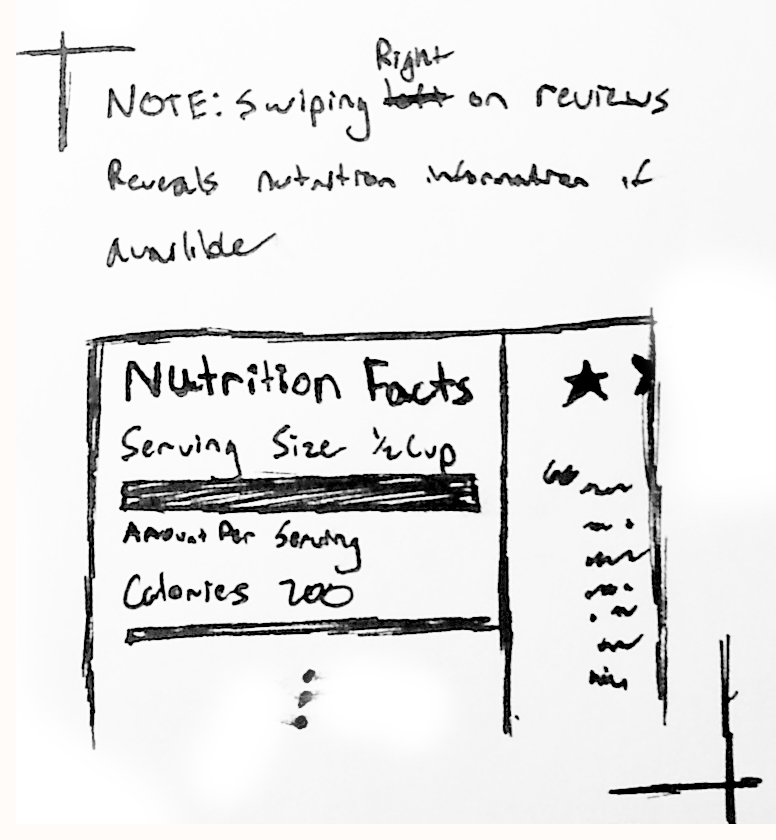 Right
NOTE: Swiping left on reviews
Reveals nutrition information if
availible
Nutrition Facts
Serving Size ½ Cup
Amount Per Serving
Calories 200